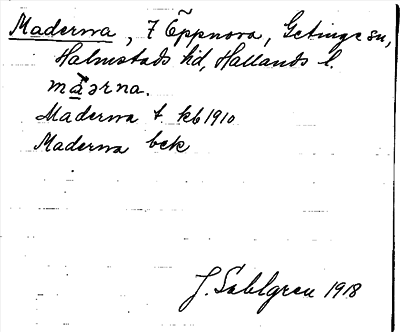 Maderna, 7 Öppnora, Getinge sn,
Halmstads hd, Hallands l.
maərna.
Maderna t. kb 1910
Maderna bek
J. Sahlgren 1918